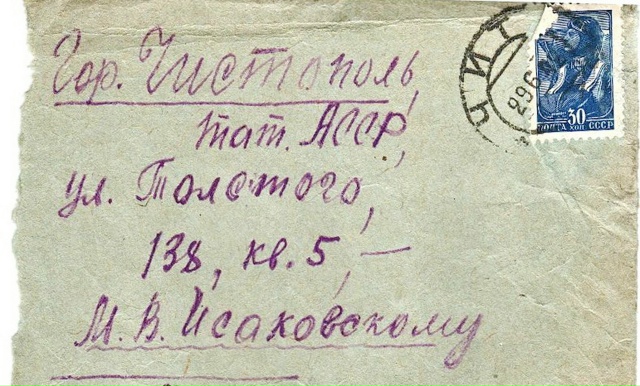 Гор. Чистополь,
тат. АССР,
ул. Толстого,
138, кв. 5, —
М. В. Исаковскому
ЧИТ
296
30
ПОЧТА КОП СССР